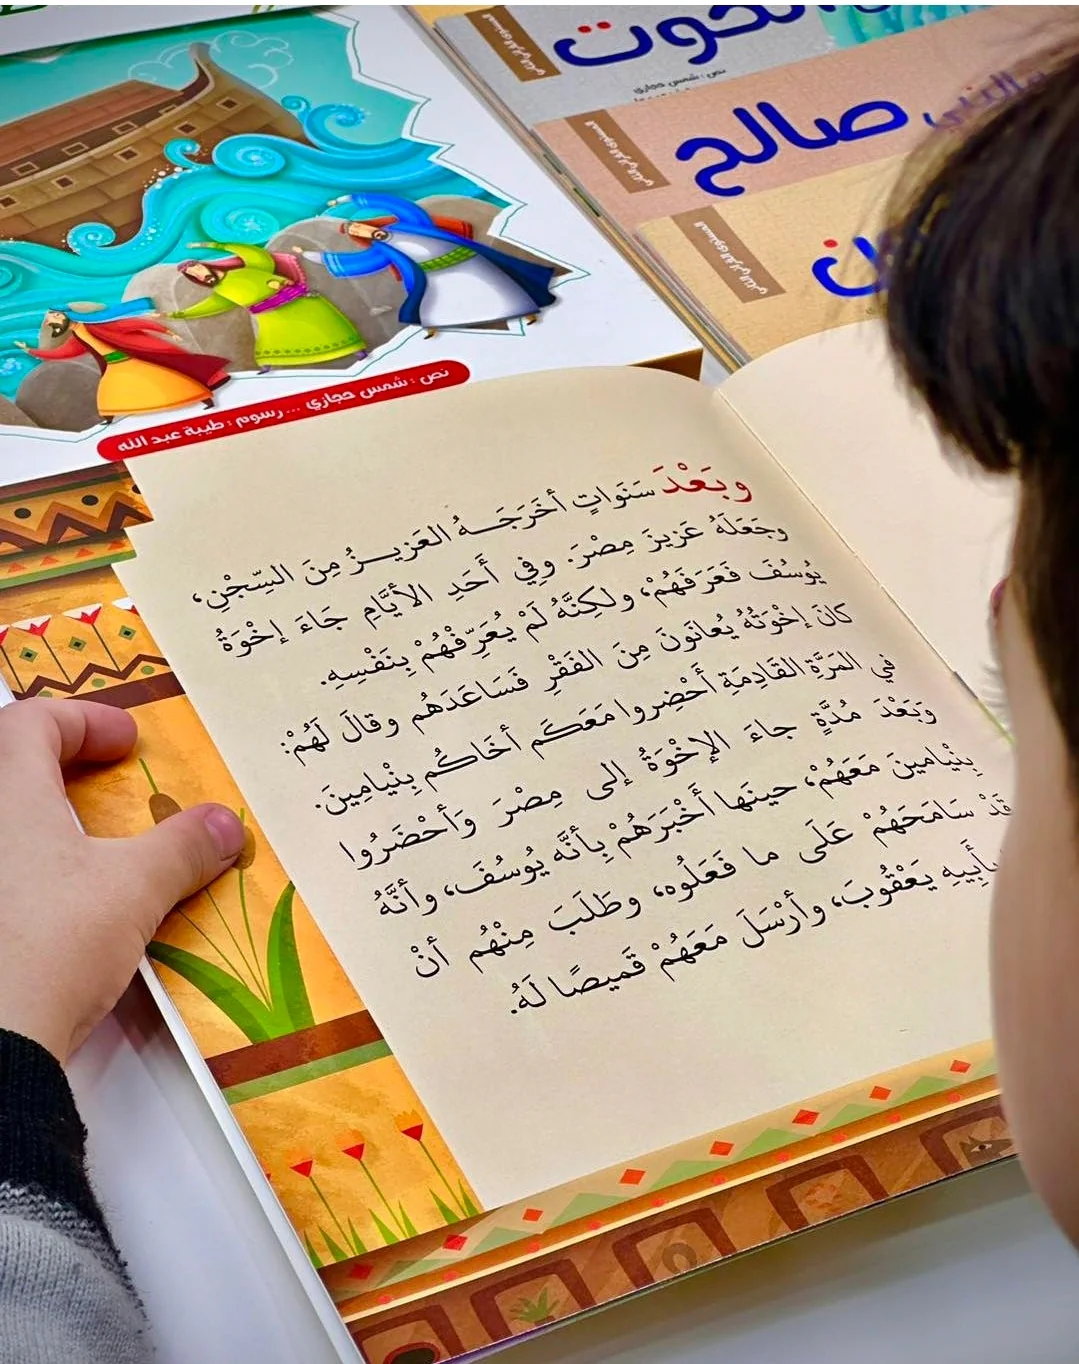 الحوت
نص : شمس حجازي
المستوى القرائي الثاني
النبي صالح
المستوى القرائي الثاني
المستوى القرائي الثاني
نص : شمس حجازي ... رسوم : طيبة عبد الله
وبَعْدَ سَنَواتٍ أخَرَجَهُ العَزيزُ مِنَ السِّجْنِ،
وجَعَلَهُ عَزيزَ مِصْرَ. وفِي أَحَدِ الأيَّامِ جَاءَ إخْوَةُ
يُوسُفَ فَعَرَفَهُمْ، ولكِنَّهُ لَمْ يُعَرِّفْهُمْ بِنَفْسِهِ.
كانَ إخْوَتُهُ يُعانَونَ مِنَ الفَقْرِ فَسَاعَدَهُم وقالَ لَهُمْ:
في المَرَّةِ القَادِمَةِ أَحْضِروا مَعَكَم أخَاكُم بِنْيامِينَ.
وَبَعْدَ مُدَّةٍ جاءَ الإخْوَةُ إلى مِصْرَ وَأحْضَرُوا
بِنْيامينَ مَعَهُمْ، حينَها أَخْبَرَهُمْ بِأنَّه يُوسُفَ، وأنَّهُ
قَدْ سَامَحَهُمْ عَلَى ما فَعَلُوه، وطَلَبَ مِنْهُم أنْ
بأَبِيهِ يَعْقُوبَ، وأرْسَلَ مَعَهُمْ قَميصًا لَهُ.